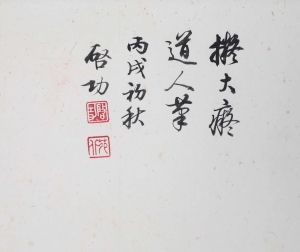 擬大癡
道人筆
丙戌初秋
啓功